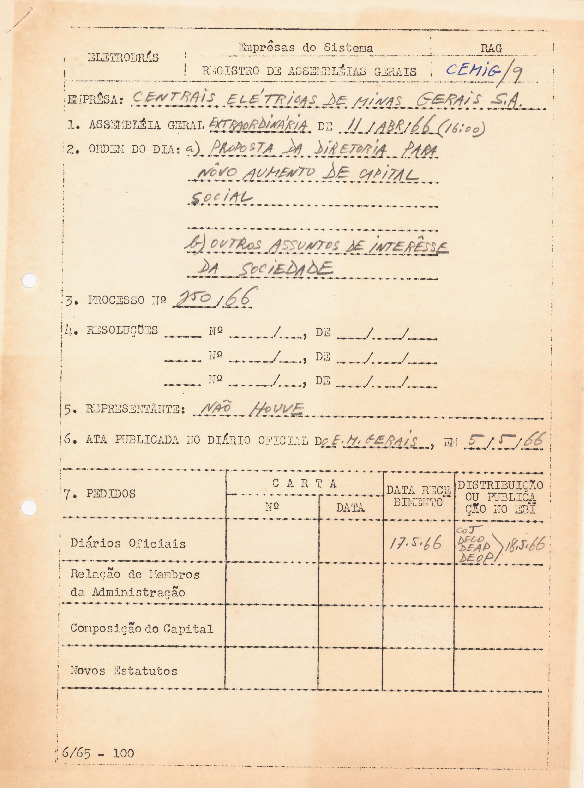 ELETROBRÁS
Emprêsas do Sistema
RAG
REGISTRO DE ASSEMBLÉIAS GERAIS
CEMIG/9
EMPRÊSA: CENTRAIS ELÉTRICAS DE MINAS GERAIS S.A.
1. ASSEMBLÉIA GERAL EXTRAORDINÁRIA DE 11/ABR/66 (16:00)
2. ORDEM DO DIA: a) PROPOSTA DA DIRETORIA PARA
NÔVO AUMENTO DE CAPITAL
SOCIAL
b) OUTROS ASSUNTOS DE INTERÊSSE
DA SOCIEDADE
3. PROCESSO Nº 250/66
4. RESOLUÇÕES ____ Nº ____/__, DE ___/___/___
____ Nº ____/__, DE ___/___/___
____ Nº ____/__, DE ___/___/___
5. REPRESENTANTE: NÃO HOUVE
6. ATA PUBLICADA NO DIÁRIO OFICIAL DO E.M.GERAIS, EM 5/5/66
7. PEDIDOS
CARTA
Nº
DATA
DATA RECE
BIMENTO
DISTRIBUIÇÃO
OU PUBLICA
ÇÃO NO EBI
Diários Oficiais
17.5.66
COJ
DECO
DEAP
DEOP
18.5.66
Relação de Membros
da Administração
Composição do Capital
Novos Estatutos
6/65 - 100